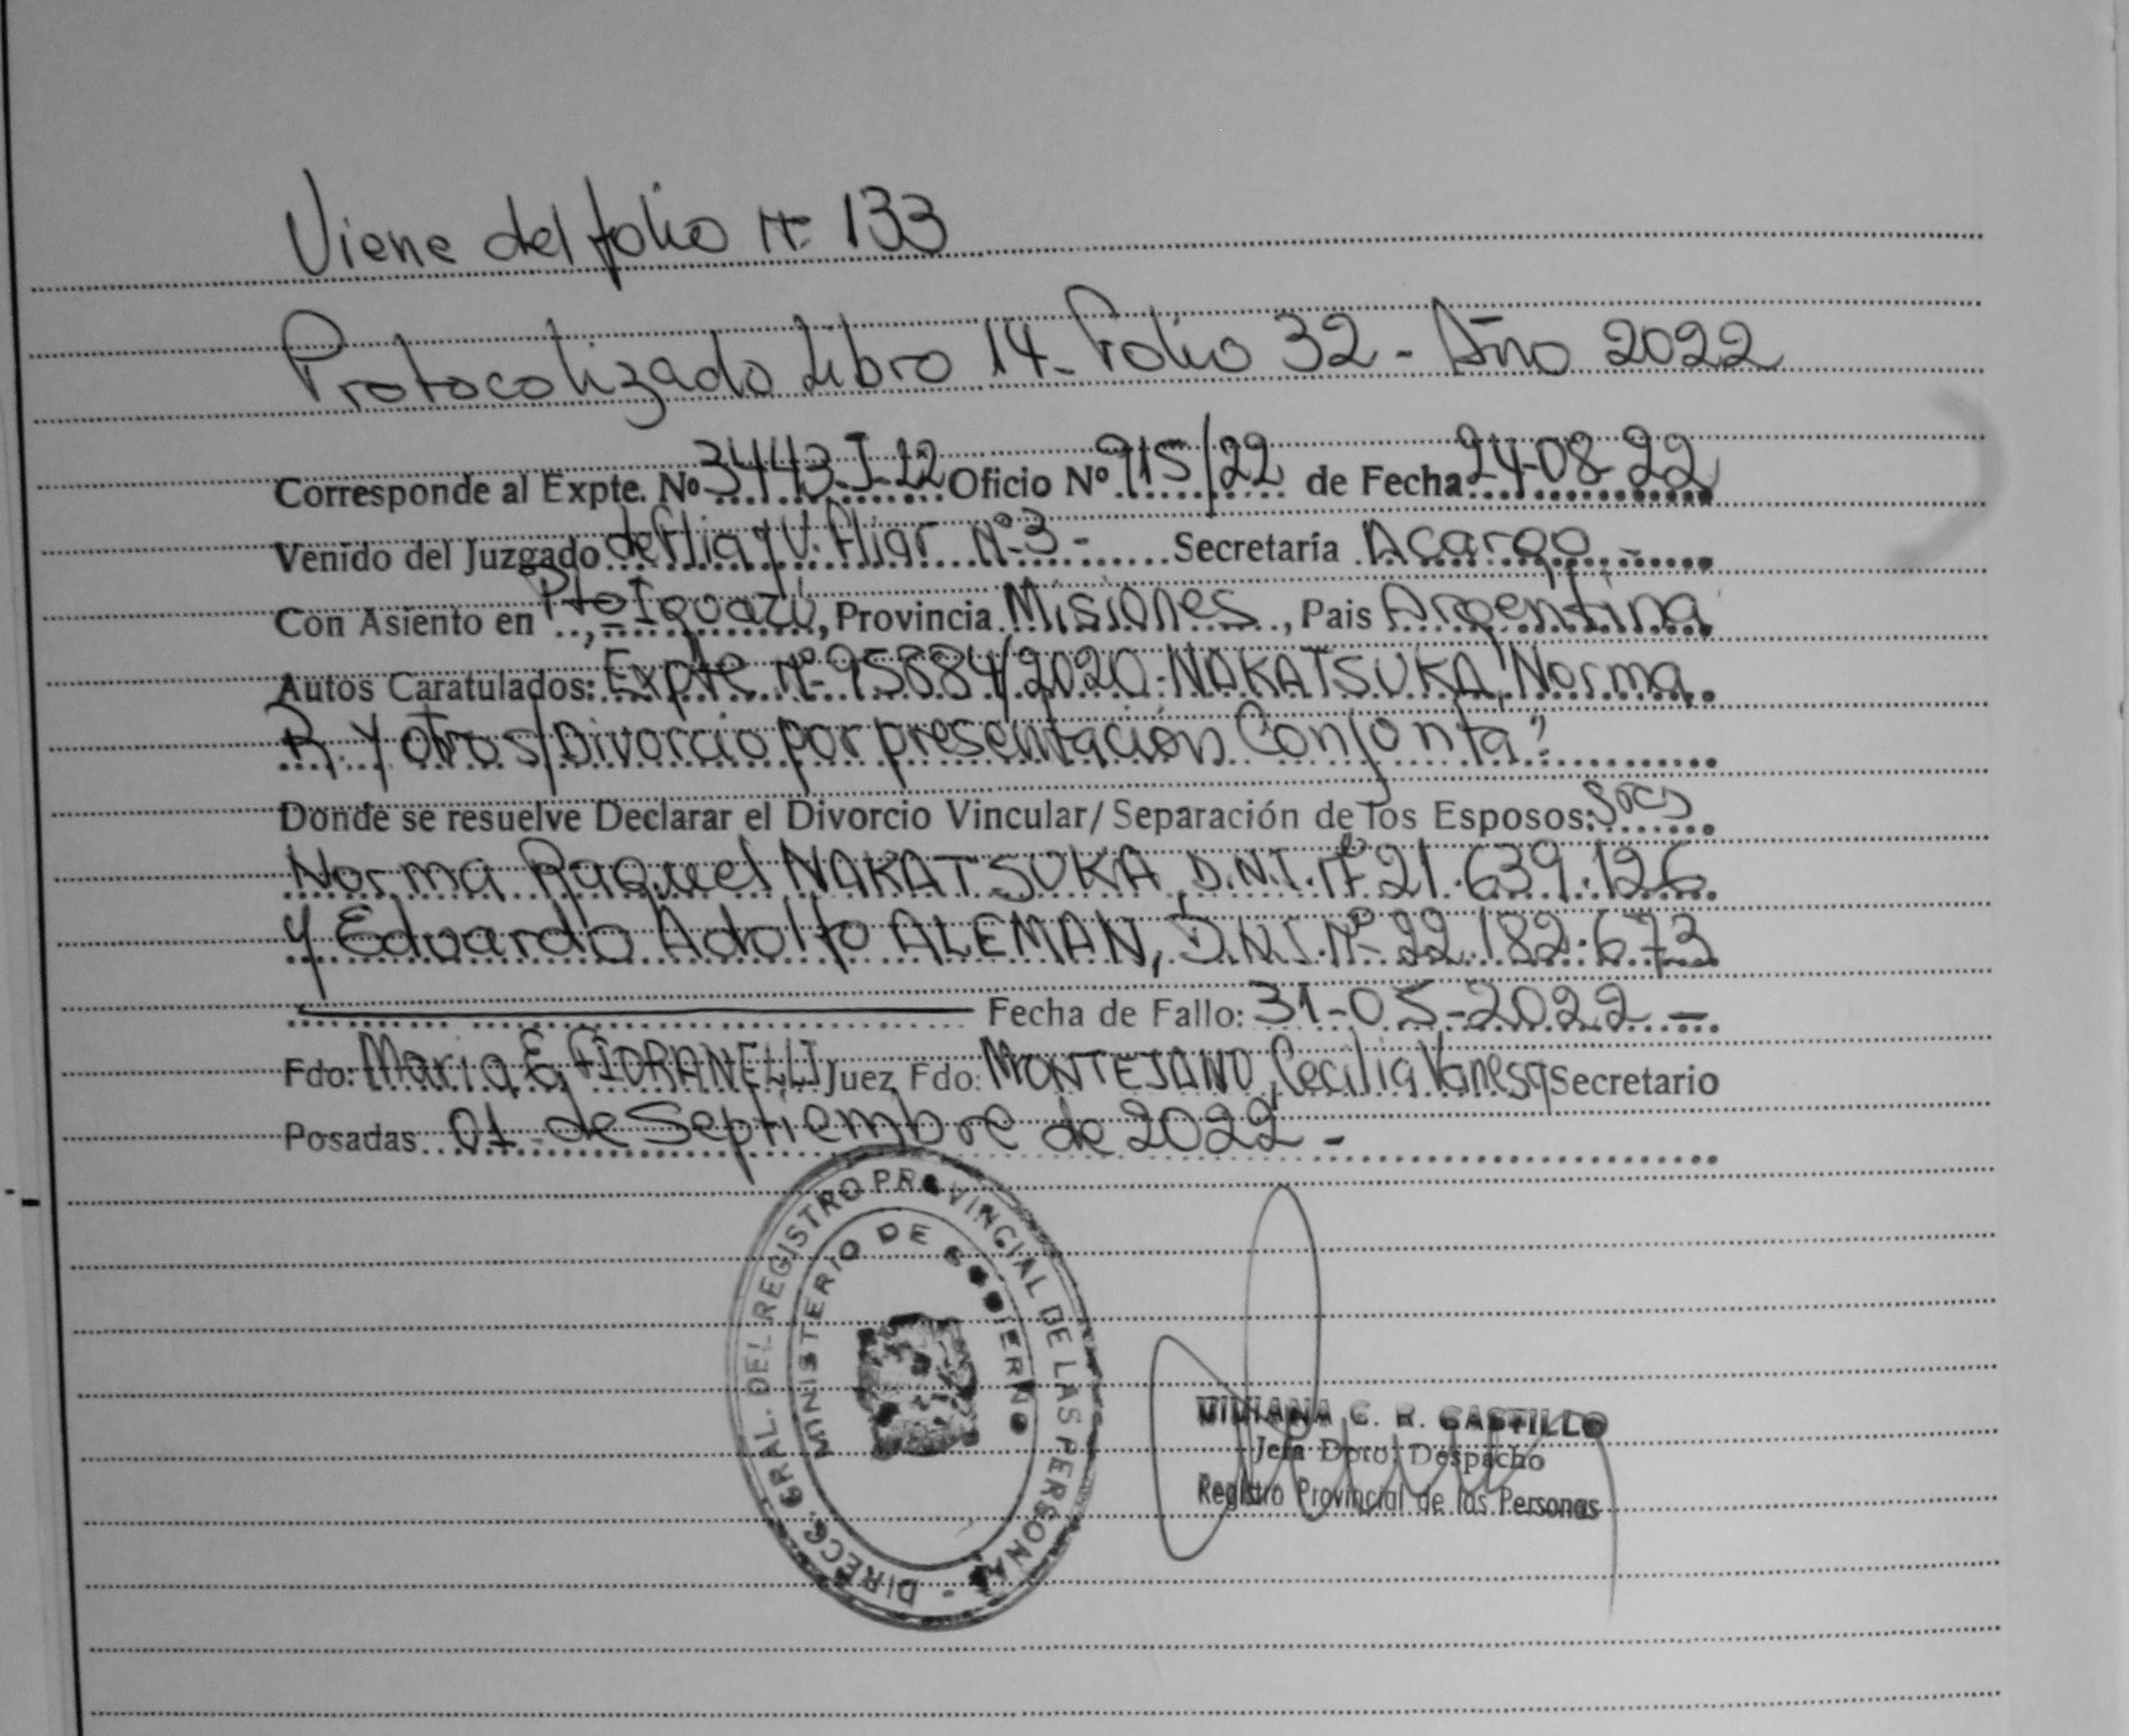 Viene del folio Nº 133
Protocolizado Libro 14 - Folio 32 - Año 2022
Corresponde al Expte. Nº 3443-J-22 Oficio Nº 915/22 de Fecha 24-08-22
Venido del Juzgado de flia y V. fliar Nº 3 - Secretaría A cargo -
Con Asiento en Pto Iguazú, Provincia Misiones, Pais Argentina
Autos Caratulados: Expte Nº 95684/2020 - NAKATSUKA, Norma
R. y otro s/Divorcio por presentación Conjunta"
Donde se resuelve Declarar el Divorcio Vincular/ Separación de los Esposos: Sres
Norma Raquel NAKATSUKA, D.N.I. Nº 21.639.126
y Eduardo Adolfo ALEMAN, D.N.I. Nº 22.182.673
Fecha de Fallo: 31-05-2022 -
Fdo: Maria E. FIORANELLI Juez Fdo: MONTEJANO, Cecilia Vanesa Secretario
Posadas 01 de Septiembre de 2022 -
DIRECC. GRAL. DEL REGISTRO PROVINCIAL DE LAS PERSONAS -
MINISTERIO DE GOBIERNO
VIVIANA C. R. CASTILLO
Jefa Dpto. Despacho
Registro Provincial de las Personas